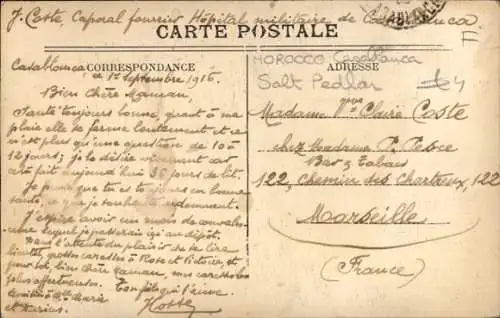 J. Coste, Caporal fourrier Hôpital militaire de Casablanca
CASABLANCA
CARTE POSTALE
F
CORRESPONDANCE
ADRESSE
MOROCCO Casablanca
Salt Pedlar
£4
Casablanca
le 1er Septembre 1916.
Bien chère Maman,
Santé toujours bonne, quant à ma
plaie elle se ferme lentement et ce
n'est plus qu'une question de 10 à
12 jours; je le désire vivement car
ça fait aujourd'hui 36 jours de lit.
Je pense que tu es toujours en bonne
santé, ce que je souhaite ardemment.
J'espère avoir un mois de convales-
cence lequel je passerais ici au dépôt.
Dans l'attente du plaisir de te lire
bientôt, grosses caresses à Rose et Victor et
pour toi, bien chère Maman, mes caresses les
plus affectueuses. Ton fils qui t'aime.
Amitiés à Mlle Marie
et Marius.
Madame Vve Claire Coste
chez Madame P.
Bar & Tabacs
122, Chemin des Chartreux, 122
Marseille
(France)